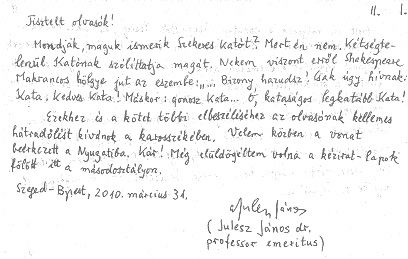 II. 1.
Tisztelt olvasók!
Mondják, maguk ismerik Szekeres Katót? Mert én nem. Kétségte-
lenül Katónak szólíttatja magát. Nekem viszont erről Shakespeare
Makrancos hölgye jut az eszembe: „... Bizony hazudsz! Csak úgy hívnak:
Kata, Kedves Kata! Máskor: gonosz Kata... Ó, kataságos legkatább Kata!
Ezekhez és a kötet többi elbeszéléséhez az olvasónak kellemes
hátradőlést kívánok a karosszékében. Velem közben a vonat
beérkezett a Nyugatiba. Kár! Még elüldögéltem volna a kézirat-lapok
fölött itt a másodosztályon.
Szeged-Bpest, 2010. március 31.
Julesz János
(Julesz János dr.
professor emeritus)